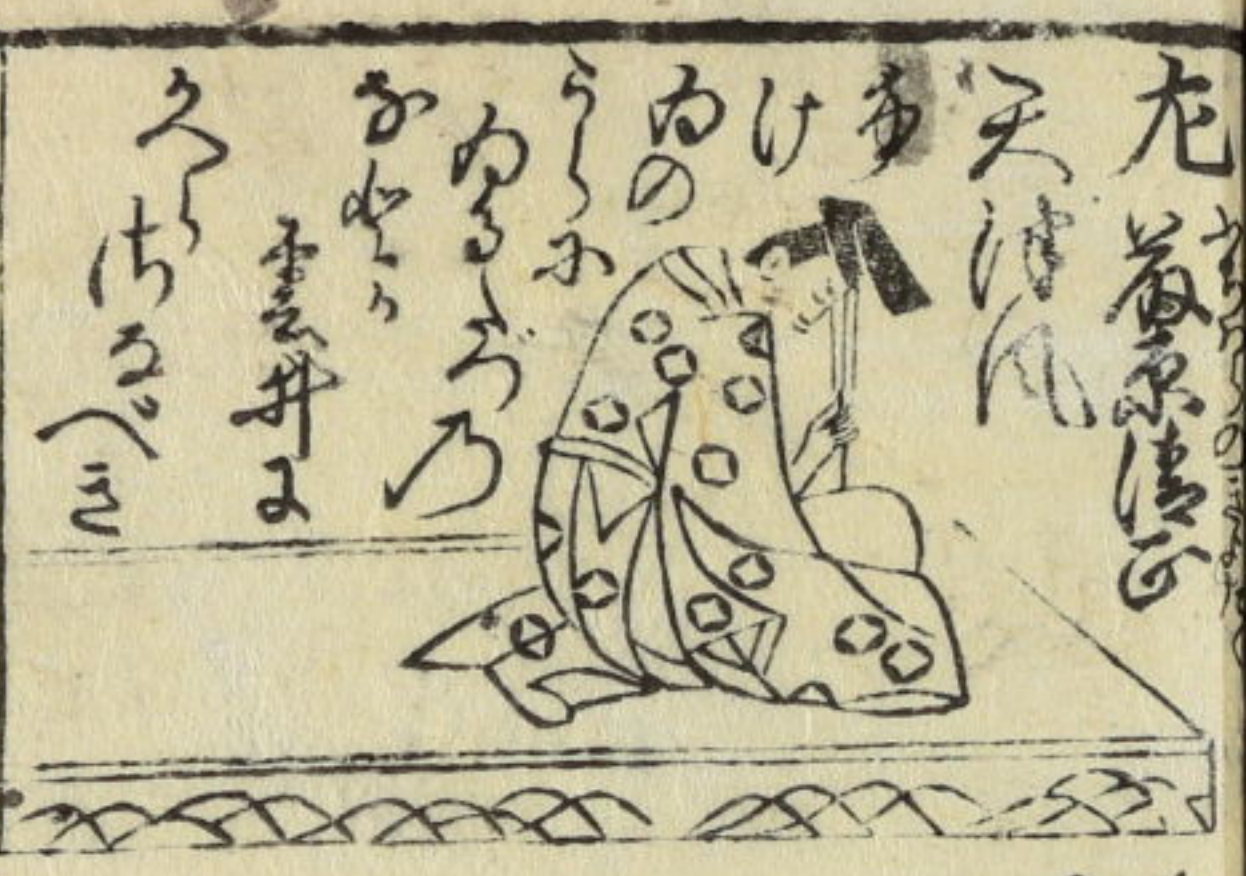 左 藤原清正
天津風
ふ
け
ゐの
うらに
ゐるたづの
などか
雲井に
かへら
ざるべき